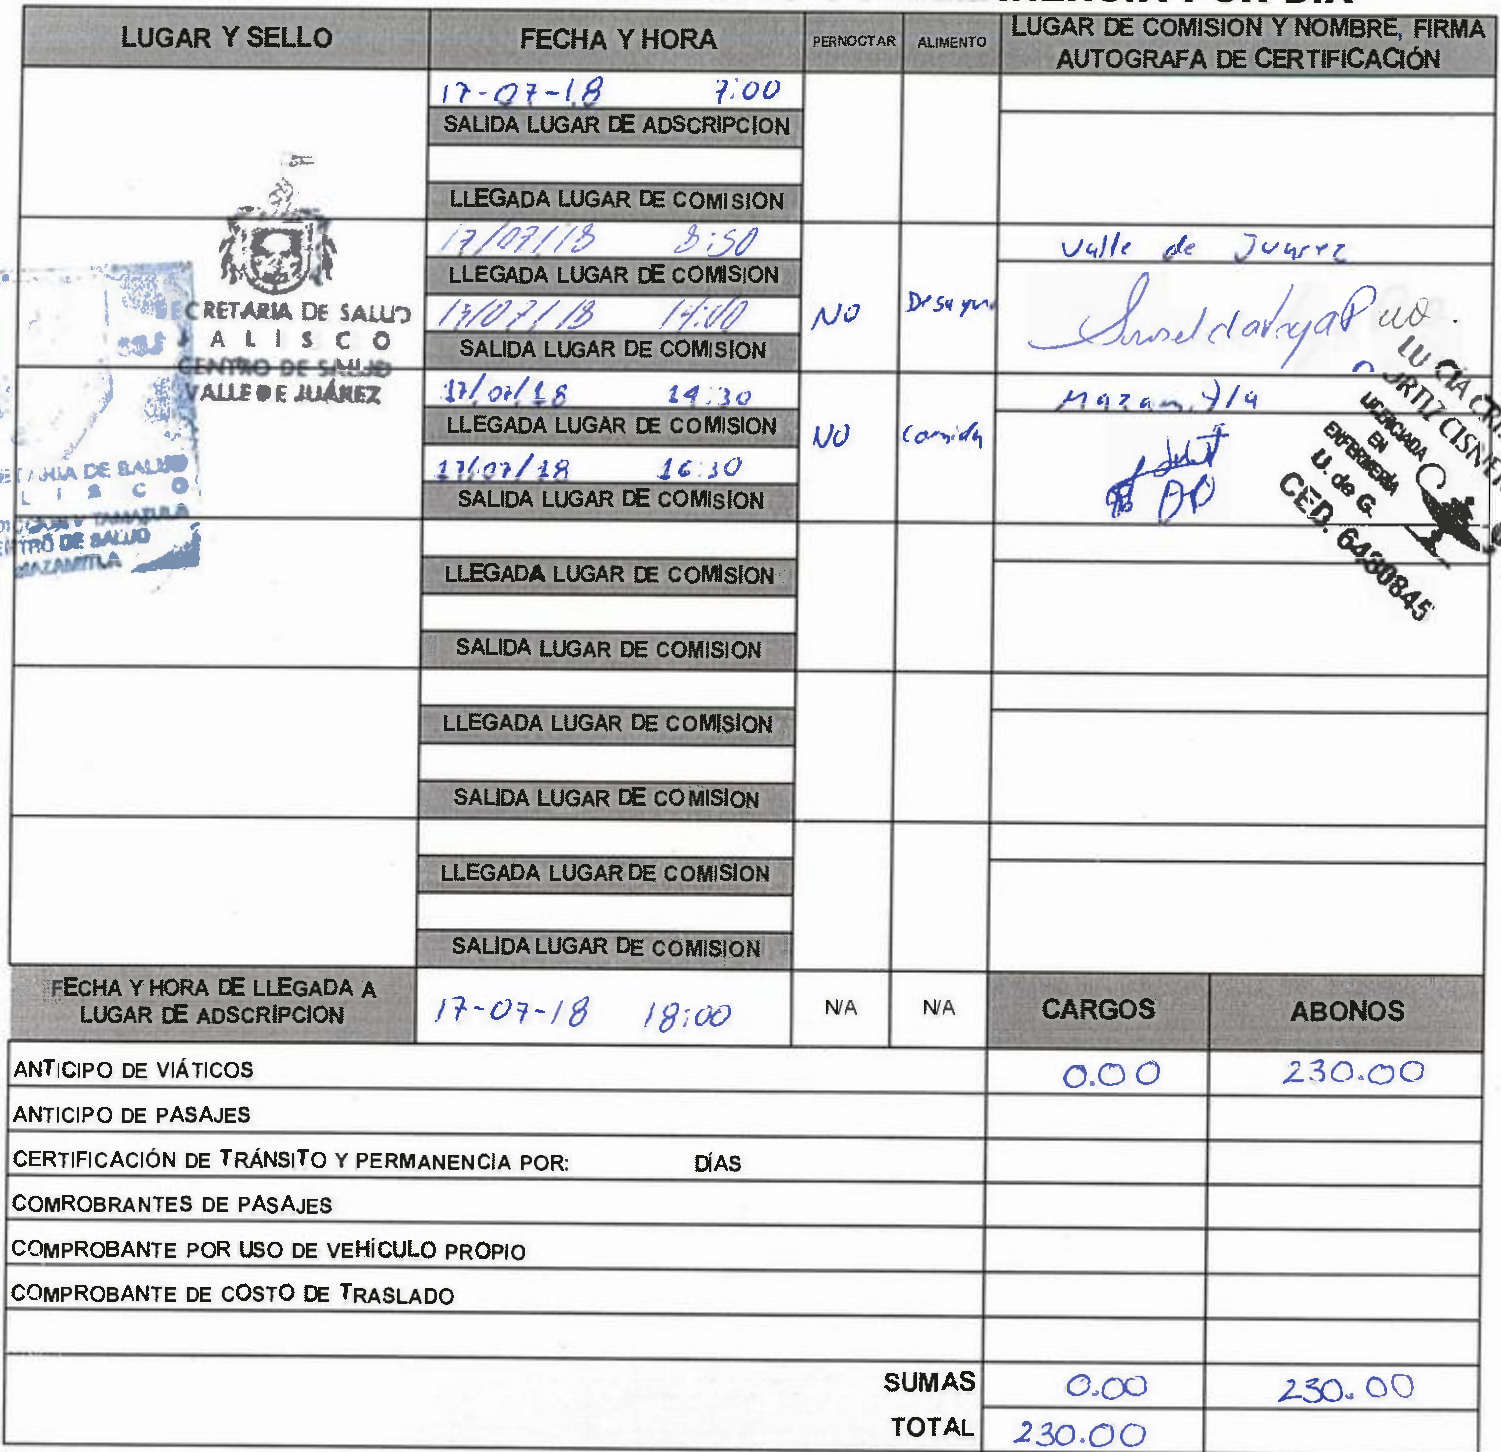 LUGAR Y SELLO FECHA Y HORA PERNOCTAR ALIMENTO LUGAR DE COMISION Y NOMBRE, FIRMA
AUTOGRAFA DE CERTIFICACIÓN
17-07-18 7:00
SALIDA LUGAR DE ADSCRIPCION
LLEGADA LUGAR DE COMISION
17/07/18 8:50 Valle de Juarez
LLEGADA LUGAR DE COMISION
17/07/18 14:00 NO Desayuno
SALIDA LUGAR DE COMISION
CRETARIA DE SALUD
JALISCO
CENTRO DE SALUD
VALLE DE JUÁREZ
17/07/18 14:30 Mazamitla
LLEGADA LUGAR DE COMISION
17/07/18 16:30 NO Comida
SALIDA LUGAR DE COMISION
LUCIA CRI
ORTIZ CISNE
LICENCIADA
EN
ENFERMERÍA
U. de G.
CED. 6430845
DE SALUD
L I S C O
Y TAMAZULA
NTRO DE SALUD
MAZAMITLA
LLEGADA LUGAR DE COMISION
SALIDA LUGAR DE COMISION
LLEGADA LUGAR DE COMISION
SALIDA LUGAR DE COMISION
LLEGADA LUGAR DE COMISION
SALIDA LUGAR DE COMISION
FECHA Y HORA DE LLEGADA A
LUGAR DE ADSCRIPCION 17-07-18 18:00 N/A N/A CARGOS ABONOS
ANTICIPO DE VIÁTICOS 0.00 230.00
ANTICIPO DE PASAJES
CERTIFICACIÓN DE TRÁNSITO Y PERMANENCIA POR: DÍAS
COMROBRANTES DE PASAJES
COMPROBANTE POR USO DE VEHÍCULO PROPIO
COMPROBANTE DE COSTO DE TRASLADO
SUMAS 0.00 230.00
TOTAL 230.00